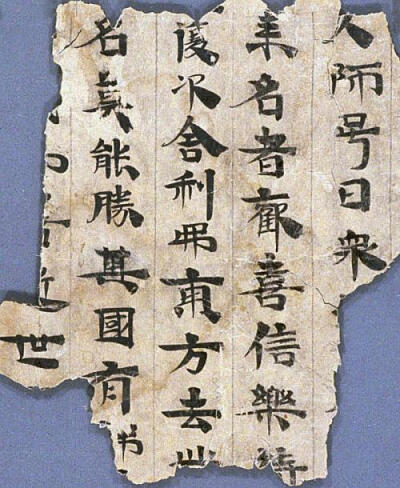 人師号曰衆
来名者歡喜信樂持
復次舍利弗東方去此
名真能勝其國有
世